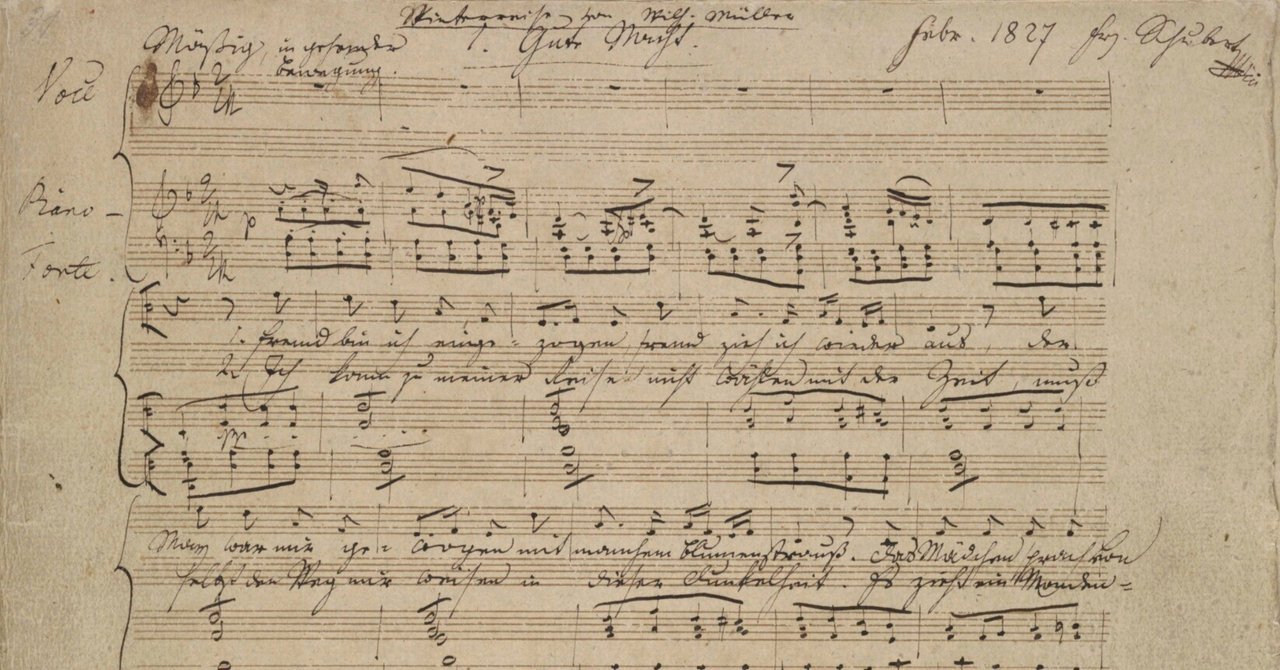 Winterreise von Wilh. Müller
Mäßig, in gehender 1. Gute Nacht. Febr. 1827 Frz. Schubert
Bewegung.
Voce
Piano-
Forte.
p
1. Fremd bin ich einge- zogen, fremd zieh ich wieder aus, der
2. Ich kann zu meiner Reise nicht wählen mit der Zeit, muß
pp
May war mir ge- wogen mit manchem Blumenstrauß. Das Mädchen sprach von
selbst den Weg mir weisen in dieser Dunkelheit. Es zieht ein Monden-